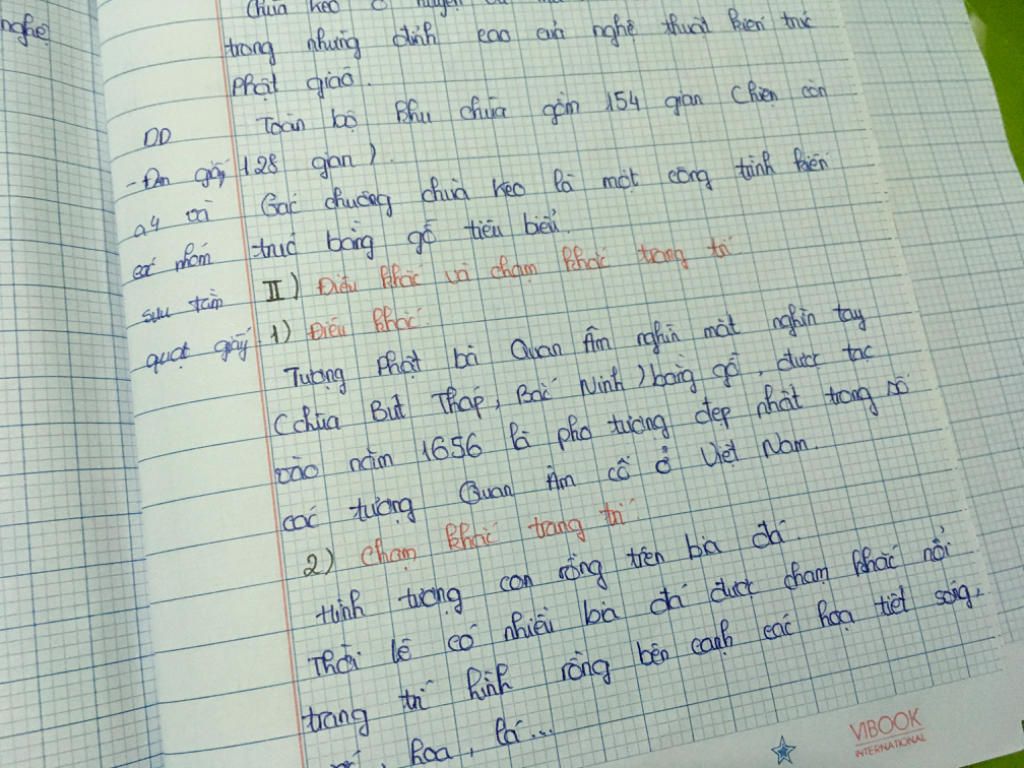 nghệ
Chùa Keo ở huyện
trong những đỉnh cao của nghệ thuật kiến trúc
Phật giáo.
Toàn bộ khu chùa gồm 154 gian (hiện còn
128 gian).
Gác chuông chùa Keo là một công trình kiến
trúc bằng gỗ tiêu biểu.
DD
- giấy
a4 và
các nhóm
sưu tầm
quạt giấy
II) Điêu khắc và chạm khắc trang trí
1) Điêu khắc.
Tượng Phật bà Quan Âm nghìn mắt nghìn tay
(chùa Bút Tháp, Bắc Ninh) bằng gỗ, được tạc
vào năm 1656 là pho tượng đẹp nhất trong số
các tượng Quan Âm cổ ở Việt Nam.
2) Chạm khắc trang trí
Hình tượng con rồng trên bia đá.
Thời lê có nhiều bia đá được chạm khắc nổi
trang trí hình rồng bên cạnh các họa tiết sóng,
hoa, lá...
VIBOOK
INTERNATIONAL